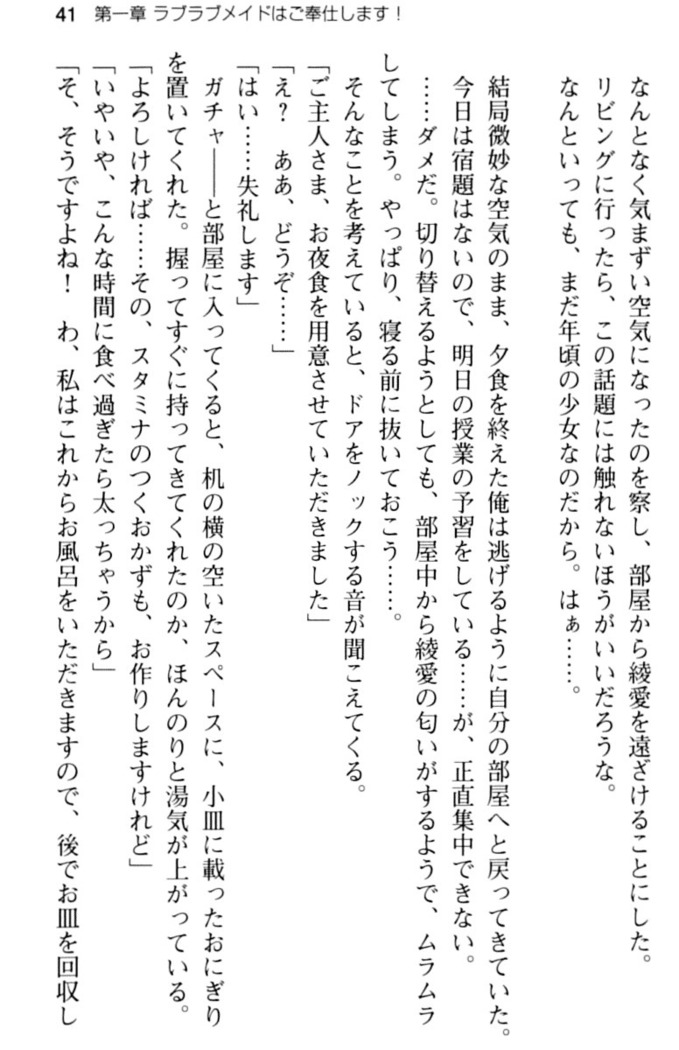 41 第一章 ラブラブメイドはご奉仕します！
なんとなく気まずい空気になったのを察し、部屋から綾愛を遠ざけることにした。
リビングに行ったら、この話題には触れないほうがいいだろうな。
なんといっても、まだ年頃の少女なのだから。はぁ……。
結局微妙な空気のまま、夕食を終えた俺は逃げるように自分の部屋へと戻ってきていた。
今日は宿題はないので、明日の授業の予習をしている……が、正直集中できない。
……ダメだ。切り替えるようとしても、部屋中から綾愛の匂いがするようで、ムラムラ
してしまう。やっぱり、寝る前に抜いておこう……。
そんなことを考えていると、ドアをノックする音が聞こえてくる。
「ご主人さま、お夜食を用意させていただきました」
「え？　ああ、どうぞ……」
「はい……失礼します」
ガチャ――と部屋に入ってくると、机の横の空いたスペースに、小皿に載ったおにぎり
を置いてくれた。握ってすぐに持ってきてくれたのか、ほんのりと湯気が上がっている。
「よろしければ……その、スタミナのつくおかずも、お作りしますけれど」
「いやいや、こんな時間に食べ過ぎたら太っちゃうから」
「そ、そうですよね！　わ、私はこれからお風呂をいただきますので、後でお皿を回収し